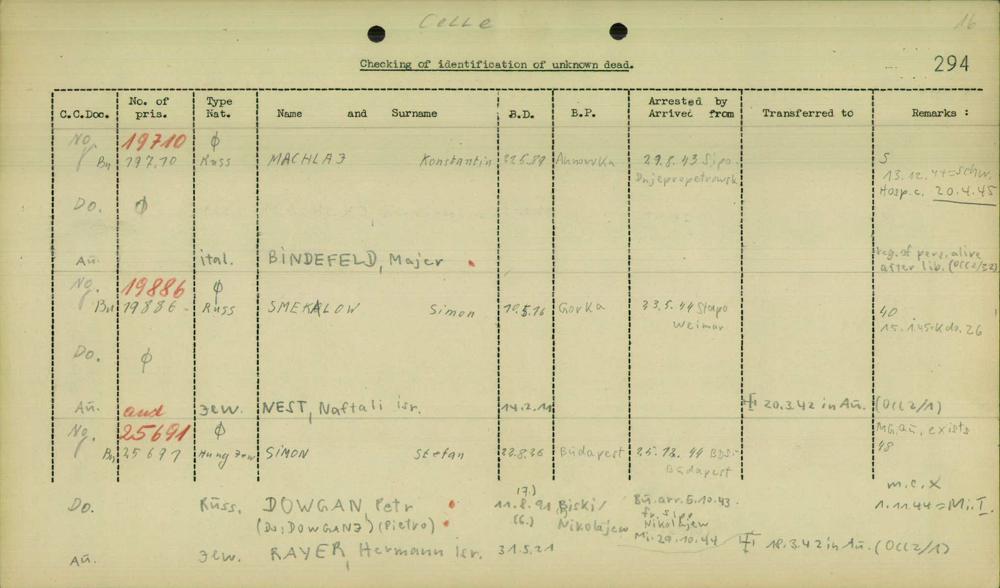 Celle 16
Checking of identification of unknown dead. 294
C.C.Doc. No. of pris. Type Nat. Name and Surname B.D. B.P. Arrested by Arrived from Transferred to Remarks :
Ng. 19710 ϕ
Bu 19710 Russ MACHLAJ Konstantin 22.5.89 Annovka 29.8.43 Sipo S
Dnjepropetrowsk 13.12.44=Schw.
Hosp.c. 20.4.45
Do. ϕ
Au. ital. BINDEFELD, Majer reg. of pers. alive
after lib. (OCC2/32)
Ng. 19886 ϕ
Bu 19886 Russ SMEKALOW Simon 10.5.16 Gorka 23.5.44 Stapo 40
Weimar 15.1.45=Kdo. 26
Do. ϕ
Au. and Jew. NEST, Naftali isr. 14.2.11 20.3.42 in Au. (OCC2/1)
Ng. 25691 ϕ MG, au, exists
Bu 25691 Hung Jew SIMON Stefan 22.8.26 Budapest 25.12.44 BDS- 48
Budapest
Do. Russ. DOWGAN, Petr 11.8.91 (7.) Biski/ Bu. arr. 5.10.43 m.c.X
(Do, DOWGANJ) (Pietro) (6.) Nikolajew fr. Sipo Nikolajew 1.11.44=Mi.I.
Mi. 29.10.44
Au. Jew. RAYER, Hermann Isr. 31.5.21 18.3.42 in Au. (OCC2/1)